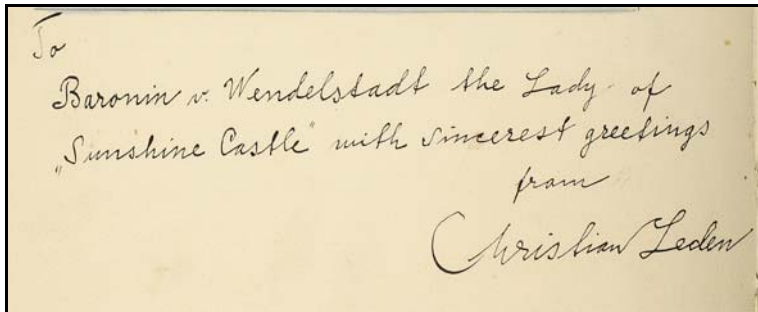 To
Baronin v. Wendelstadt the Lady of
„Sunshine Castle" with sincerest greetings
from
Christian Leden